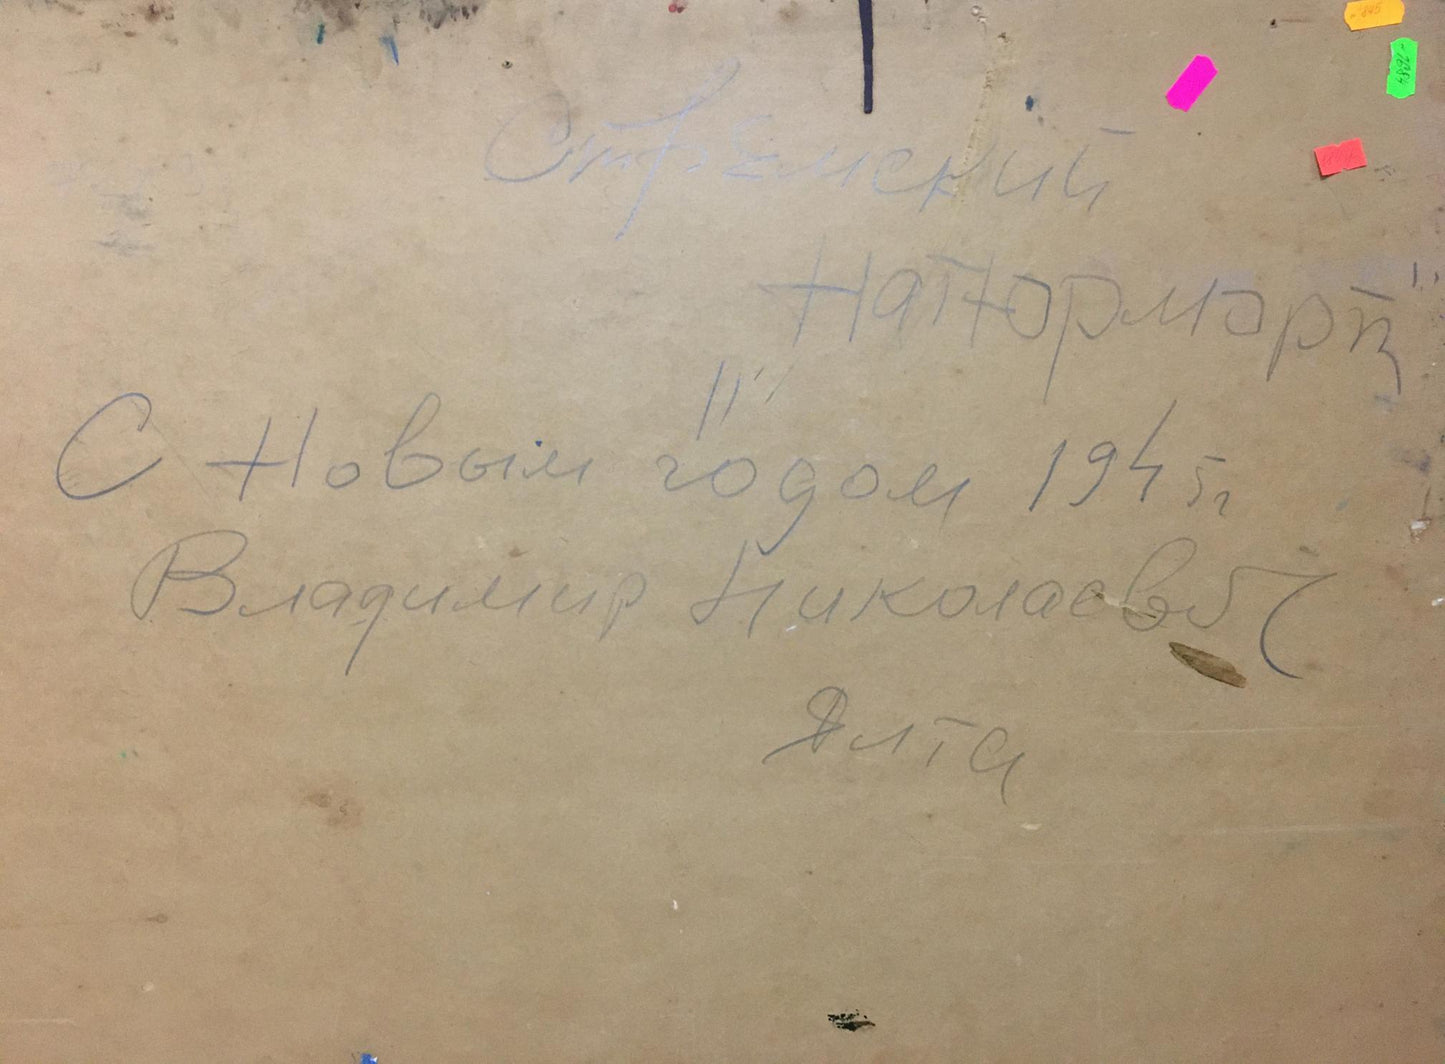 Стремский
Натюрморт"
"
С Новым годом 1945г
Владимир Николаевич
Ялта